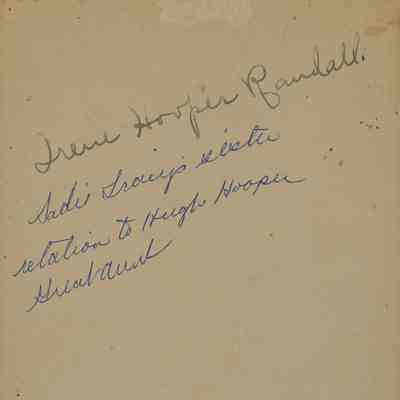 Irene Hooper Randall.
Sadie sister
relation to Hugh Hooper
Great Aunt